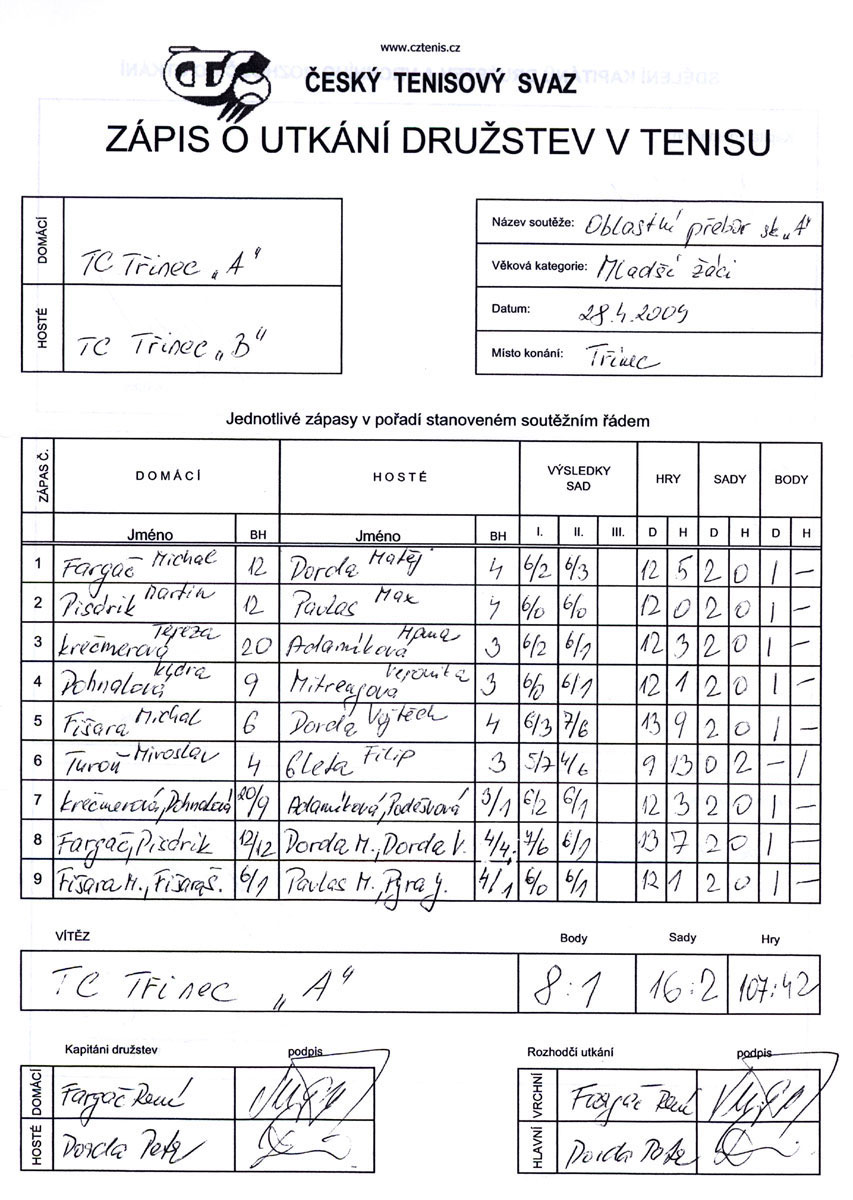 www.cztenis.cz
ČESKÝ TENISOVÝ SVAZ
ZÁPIS O UTKÁNÍ DRUŽSTEV V TENISU
DOMÁCÍ TC Třinec „A"
HOSTÉ TC Třinec „B"
Název soutěže: Oblastní přebor sk. „A"
Věková kategorie: Mladší žáci
Datum: 28.4.2009
Místo konání: Třinec
Jednotlivé zápasy v pořadí stanoveném soutěžním řádem
ZÁPAS Č. DOMÁCÍ HOSTÉ VÝSLEDKY SAD HRY SADY BODY
Jméno BH Jméno BH I. II. III. D H D H D H
1 Fargač Michal 12 Dorda Matěj 4 6/2 6/3 12 5 2 0 1 –
2 Pisdrik Martin 12 Pavlas Max 4 6/0 6/0 12 0 2 0 1 –
3 Krečmerová Tereza 20 Adamíková Hana 3 6/2 6/1 12 3 2 0 1 –
4 Dohnalová 9 Veronika 3 6/0 6/1 12 1 2 0 1 –
5 Fišara Michal 6 Dorda Vojtěch 4 6/3 7/6 13 9 2 0 1 –
6 Turoň Miroslav 4 Filip 3 5/7 4/6 9 13 0 2 – 1
7 Krečmerová, Dohnalová 20/9 Adamíková, Poděšvová 3/1 6/2 6/1 12 3 2 0 1 –
8 Fargač, Pisdrik 12/12 Dorda M., Dorda V. 4/4 7/6 6/1 13 7 2 0 1 –
9 Fišara M., Fišara Š. 6/1 Pavlas M., Pyra J. 4/1 6/0 6/1 12 1 2 0 1 –
VÍTĚZ Body Sady Hry
TC Třinec „A" 8:1 16:2 107:42
Kapitáni družstev podpis
DOMÁCÍ Fargač René
HOSTÉ Dorda Petr
Rozhodčí utkání podpis
VRCHNÍ Fargač René
HLAVNÍ Dorda Petr